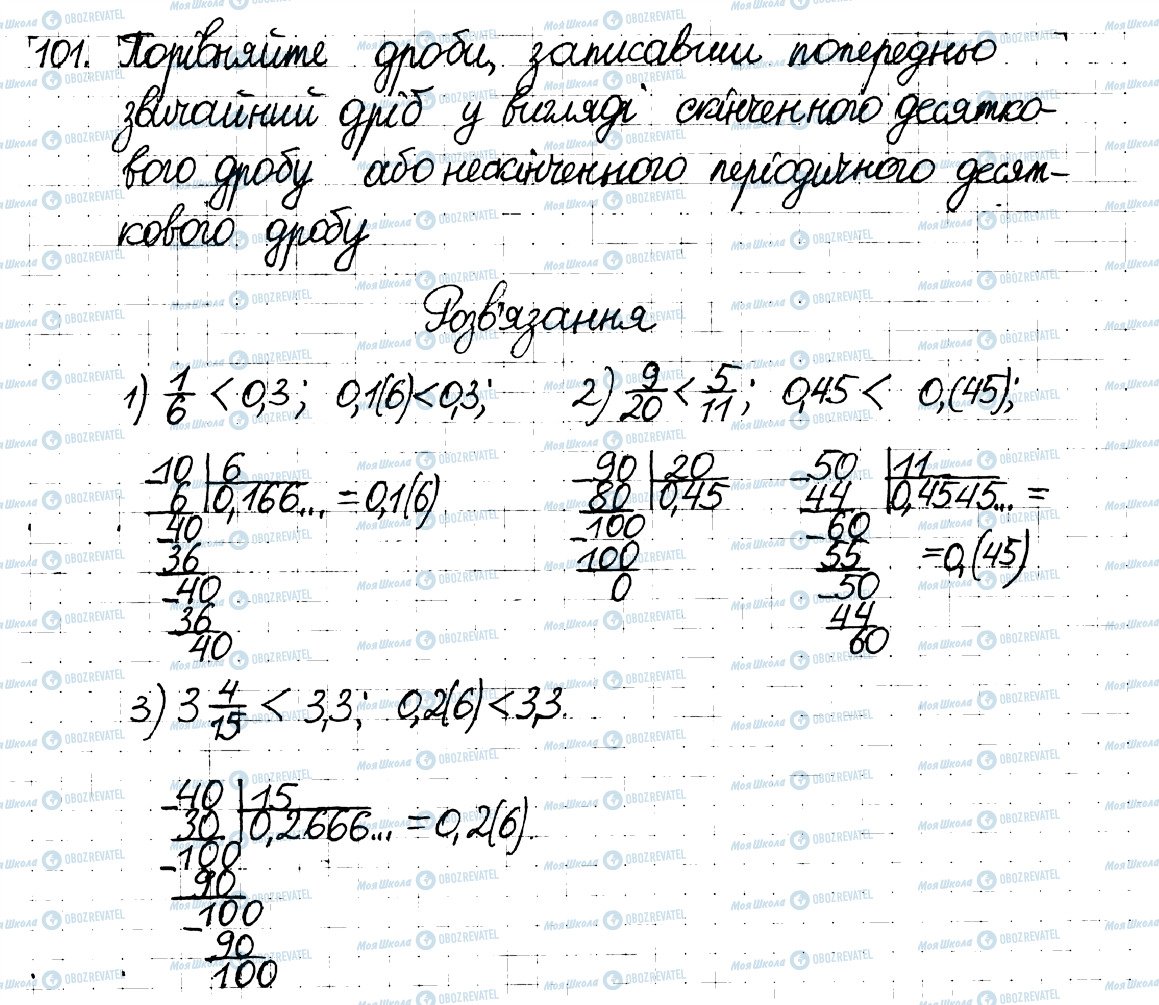 101. Порівняйте дроби, записавши попередньо
звичайний дріб у вигляді скінченного десятко-
вого дробу або нескінченного періодичного десят-
кового дробу
Розв'язання
1) 1/6 < 0,3; 0,1(6) < 0,3; 2) 9/20 < 5/11; 0,45 < 0,(45);
10 | 6
6 | 0,166... = 0,1(6)
40
36
40
36
40
90 | 20
80 | 0,45
100
100
0
50 | 11
44 | 0,4545... =
60 = 0,(45)
55
50
44
60
3) 3 4/15 < 3,3; 0,2(6) < 3,3.
40 | 15
30 | 0,2666... = 0,2(6).
100
90
100
90
100
Моя Школа OBOZREVATEL